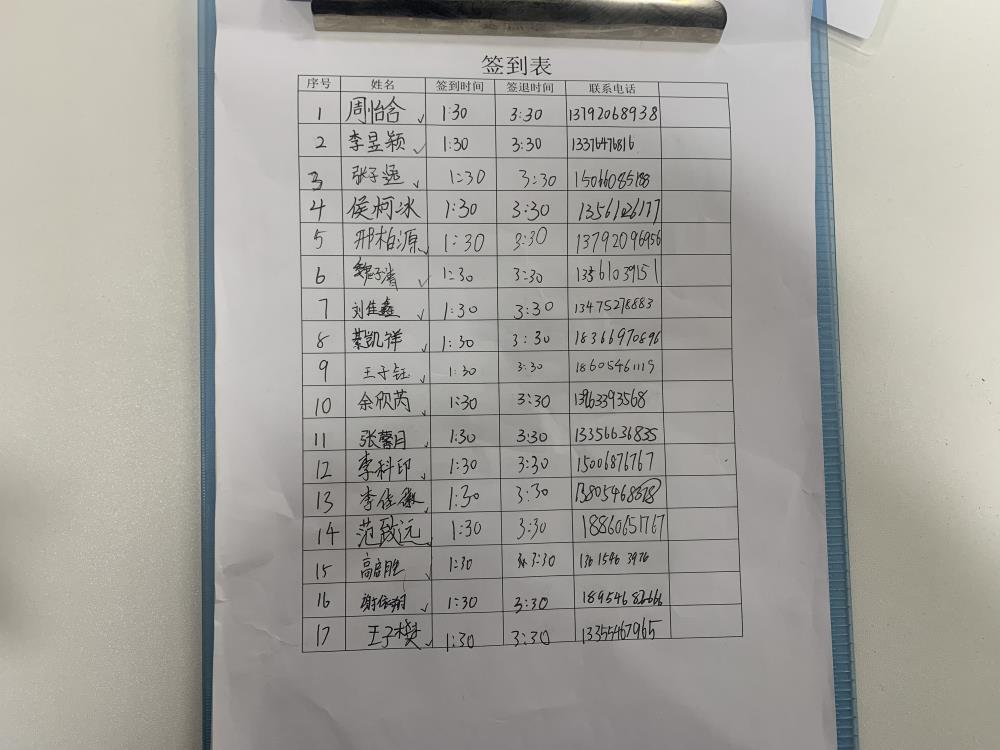 签到表
序号 姓名 签到时间 签退时间 联系电话
1 周怡含 1:30 3:30 13792068938
2 李昱颖 1:30 3:30 13376476816
3 张子逸 1:30 3:30 15066085188
4 侯柯冰 1:30 3:30
5 邢柏源 1:30 3:30 13792096956
6 魏子清 1:30 3:30
7 刘佳鑫 1:30 3:30 13475278883
8 綦凯祥 1:30 3:30 18366970896
9 王子钰 1:30 3:30 18605461119
10 余欣芮 1:30 3:30 13963393568
11 张馨月 1:30 3:30 13356636835
12 李科印 1:30 3:30 15006876767
13 李佳徽 1:30 3:30
14 范致远 1:30 3:30 18860651767
15 高启胜 1:30 3:30
16 谢依翔 1:30 3:30
17 王子樊 1:30 3:30 13355467965